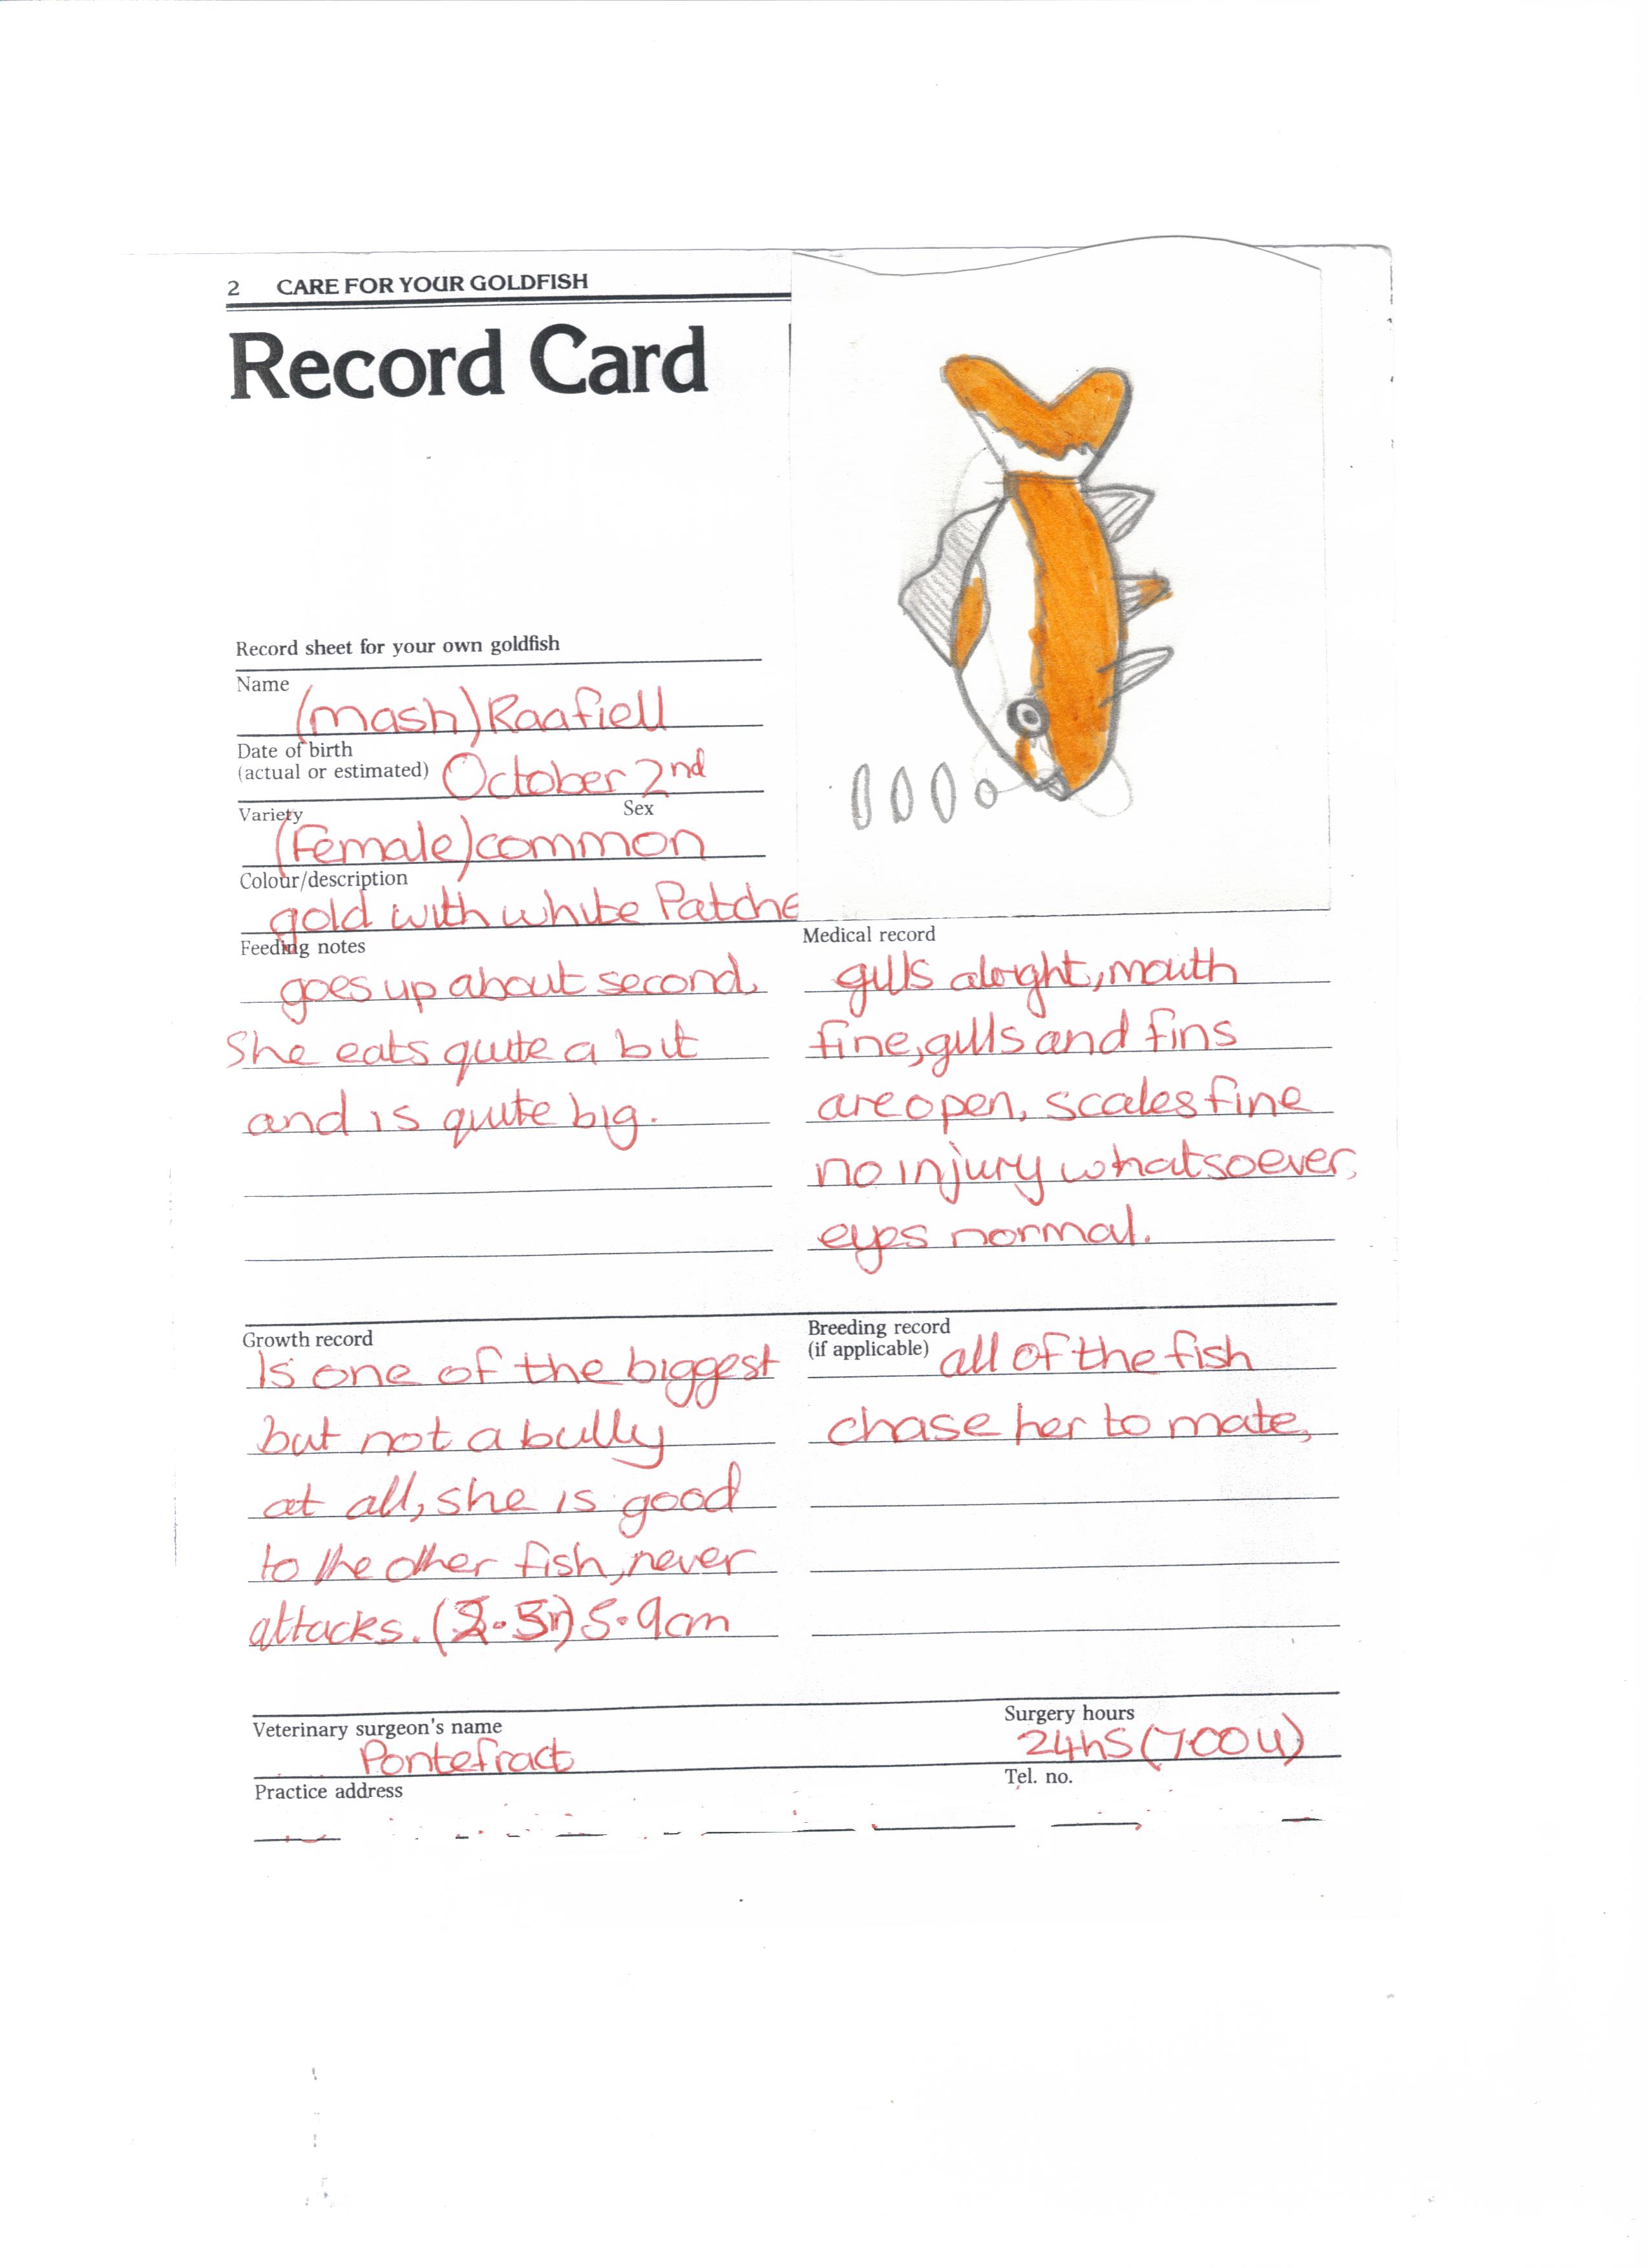 2 CARE FOR YOUR GOLDFISH
Record Card
Record sheet for your own goldfish
Name
(mash) Raafiell
Date of birth
(actual or estimated) October 2nd
Variety Sex
(Female) common
Colour/description
gold with white Patche
Feeding notes
goes up about second.
She eats quite a bit
and is quite big.
Medical record
gills alright, mouth
fine, gills and fins
are open, scales fine
no injury whatsoever,
eyes normal.
Growth record
Is one of the biggest
but not a bully
at all, she is good
to the other fish, never
attacks. 5.9cm
Breeding record
(if applicable) all of the fish
chase her to mate,
Veterinary surgeon's name
Pontefract
Surgery hours
24hS
Practice address
Tel. no.